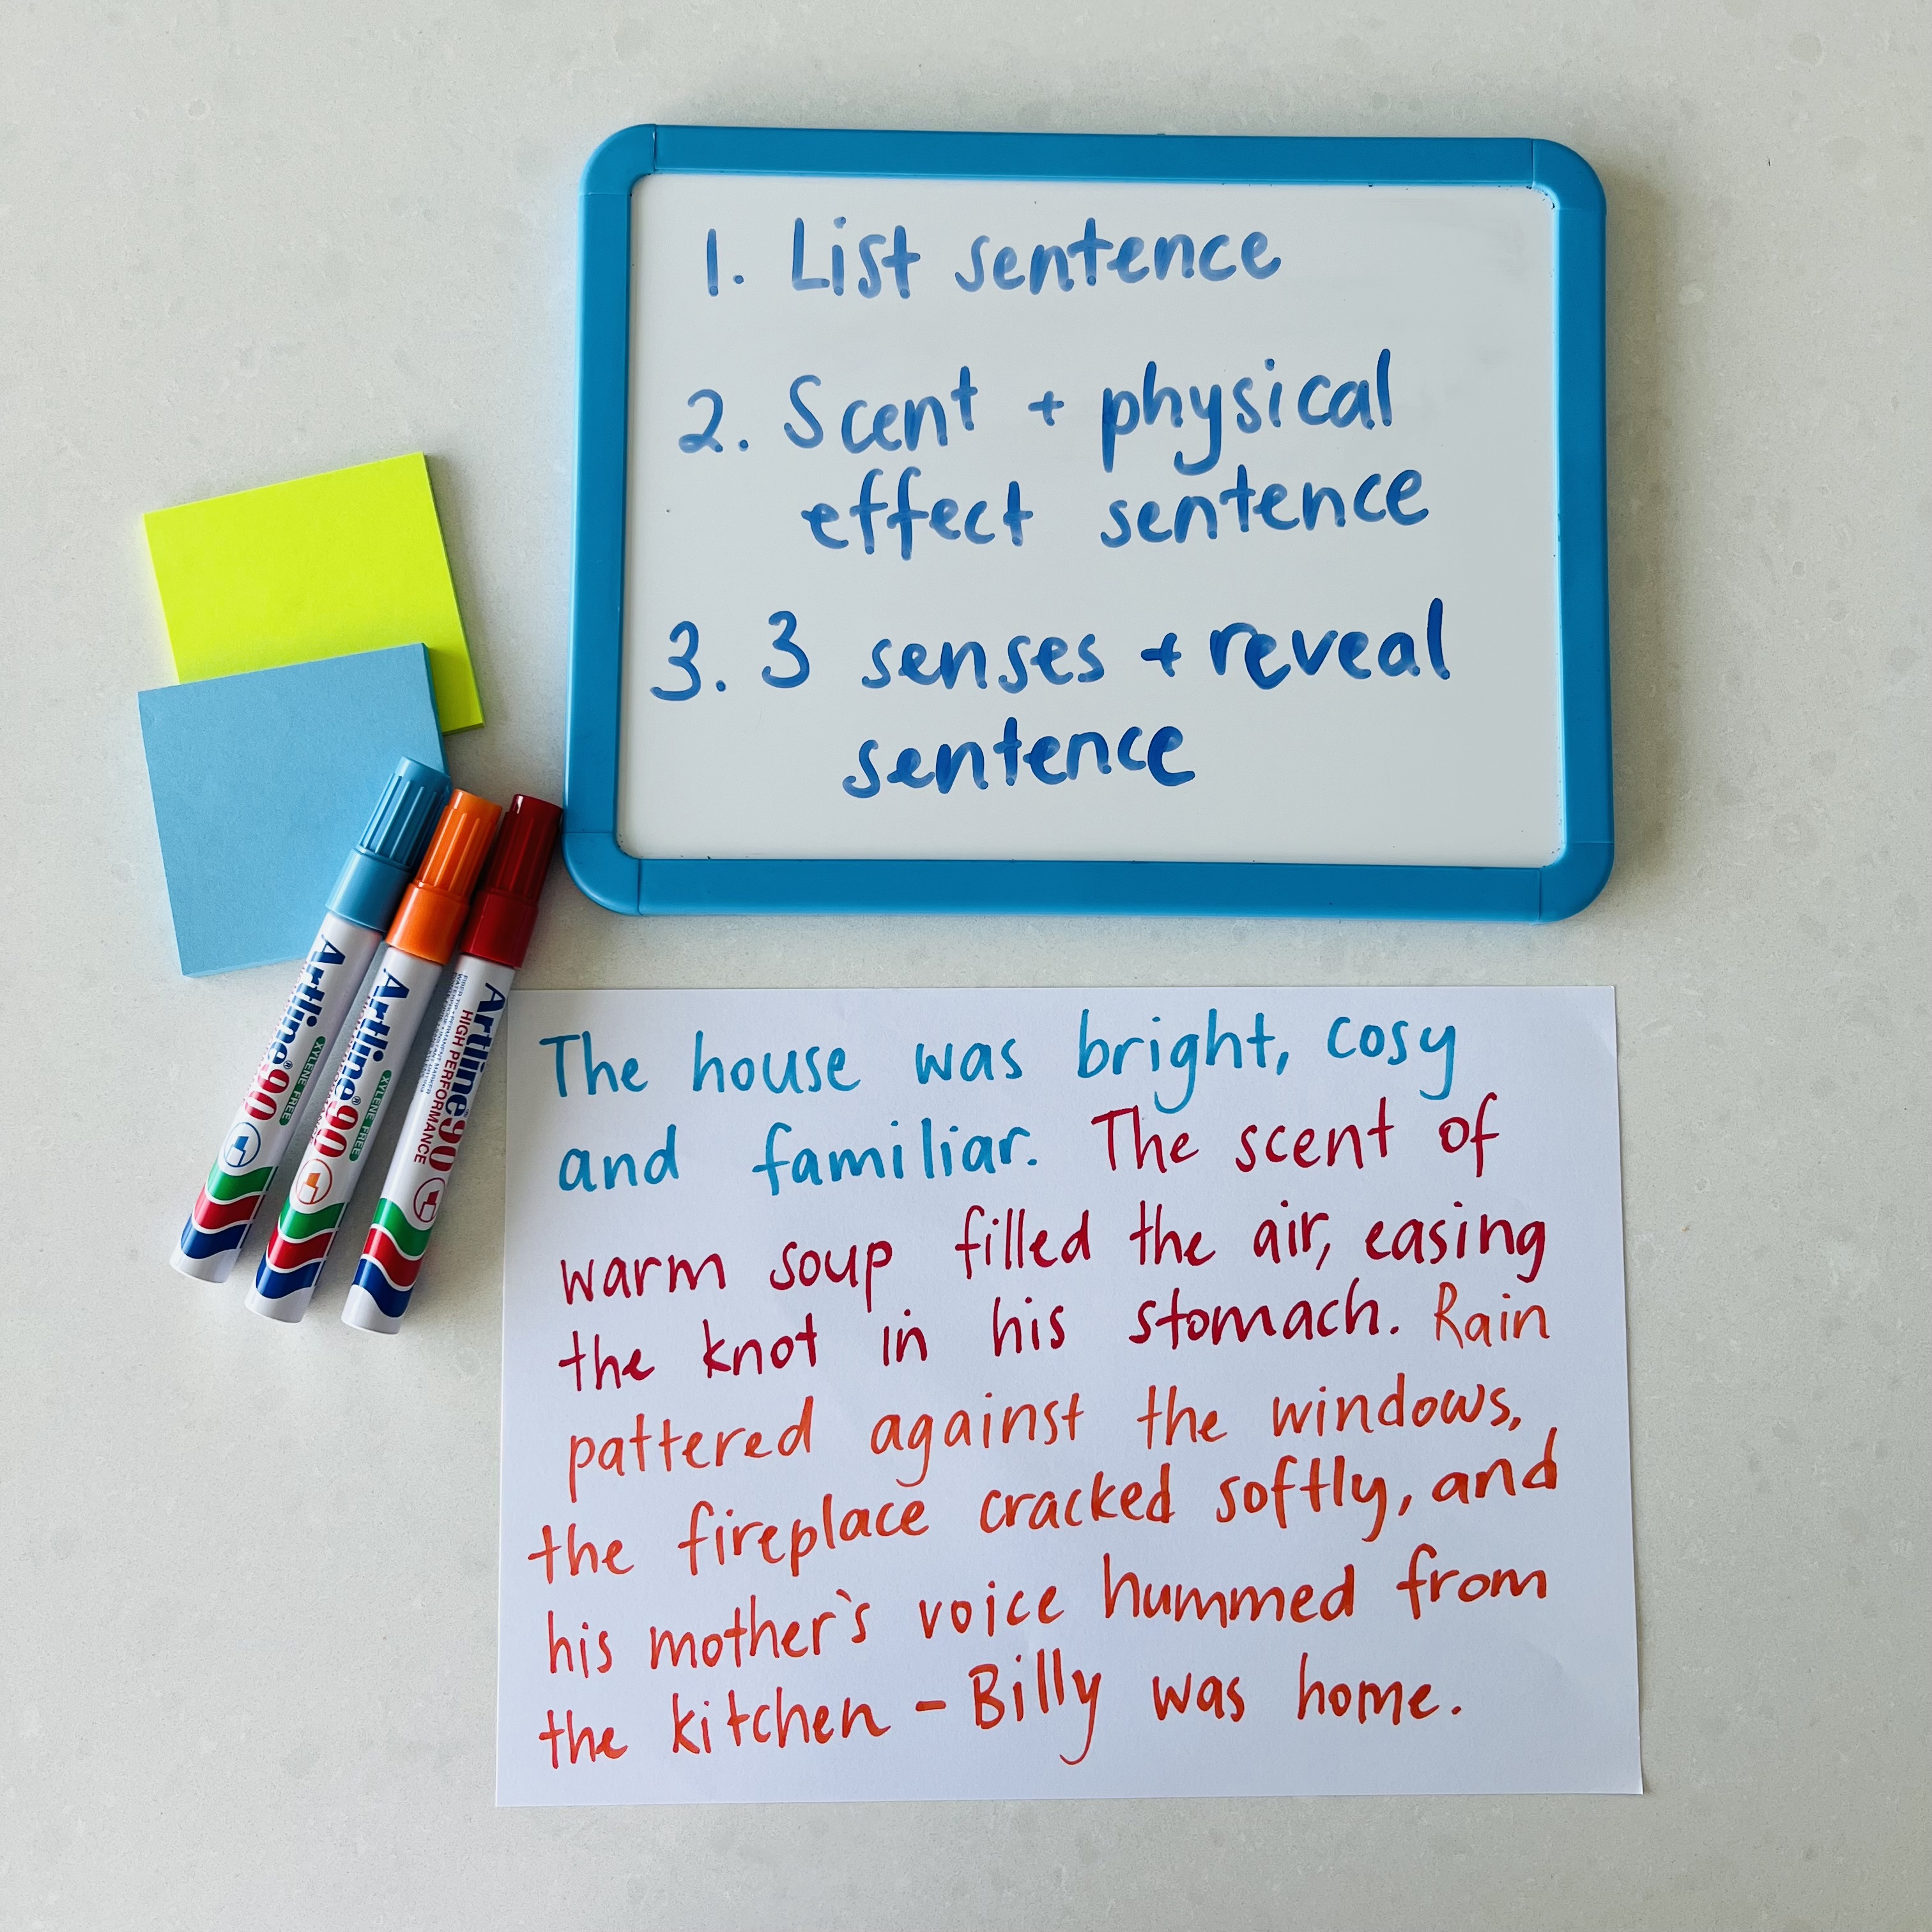 1. List sentence
2. Scent + physical
effect sentence
3. 3 senses + reveal
sentence
Artline®90
XYLENE FREE
Artline®90
XYLENE FREE
Artline90
HIGH PERFORMANCE
The house was bright, cosy
and familiar. The scent of
warm soup filled the air, easing
the knot in his stomach. Rain
pattered against the windows,
the fireplace cracked softly, and
his mother's voice hummed from
the kitchen – Billy was home.